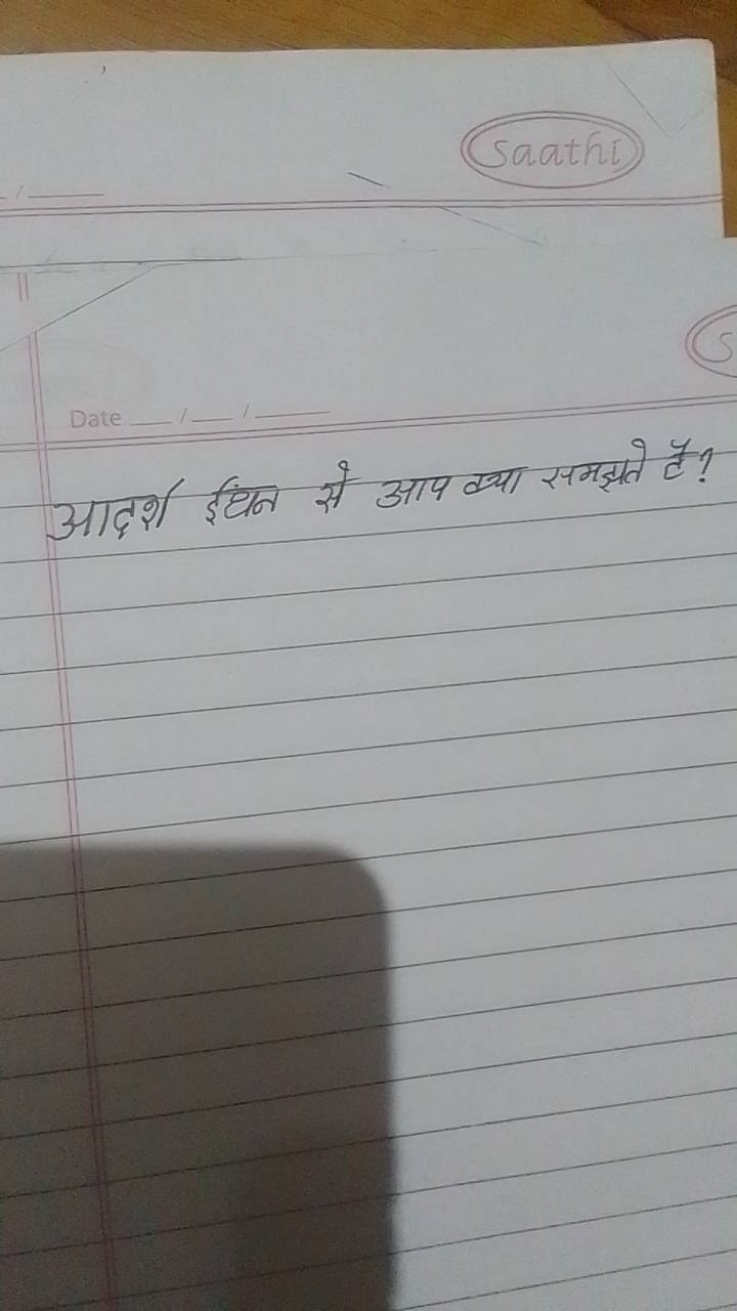 Saathi
Date __/__/____
आदर्श ईंधन से आप क्या समझते हैं?